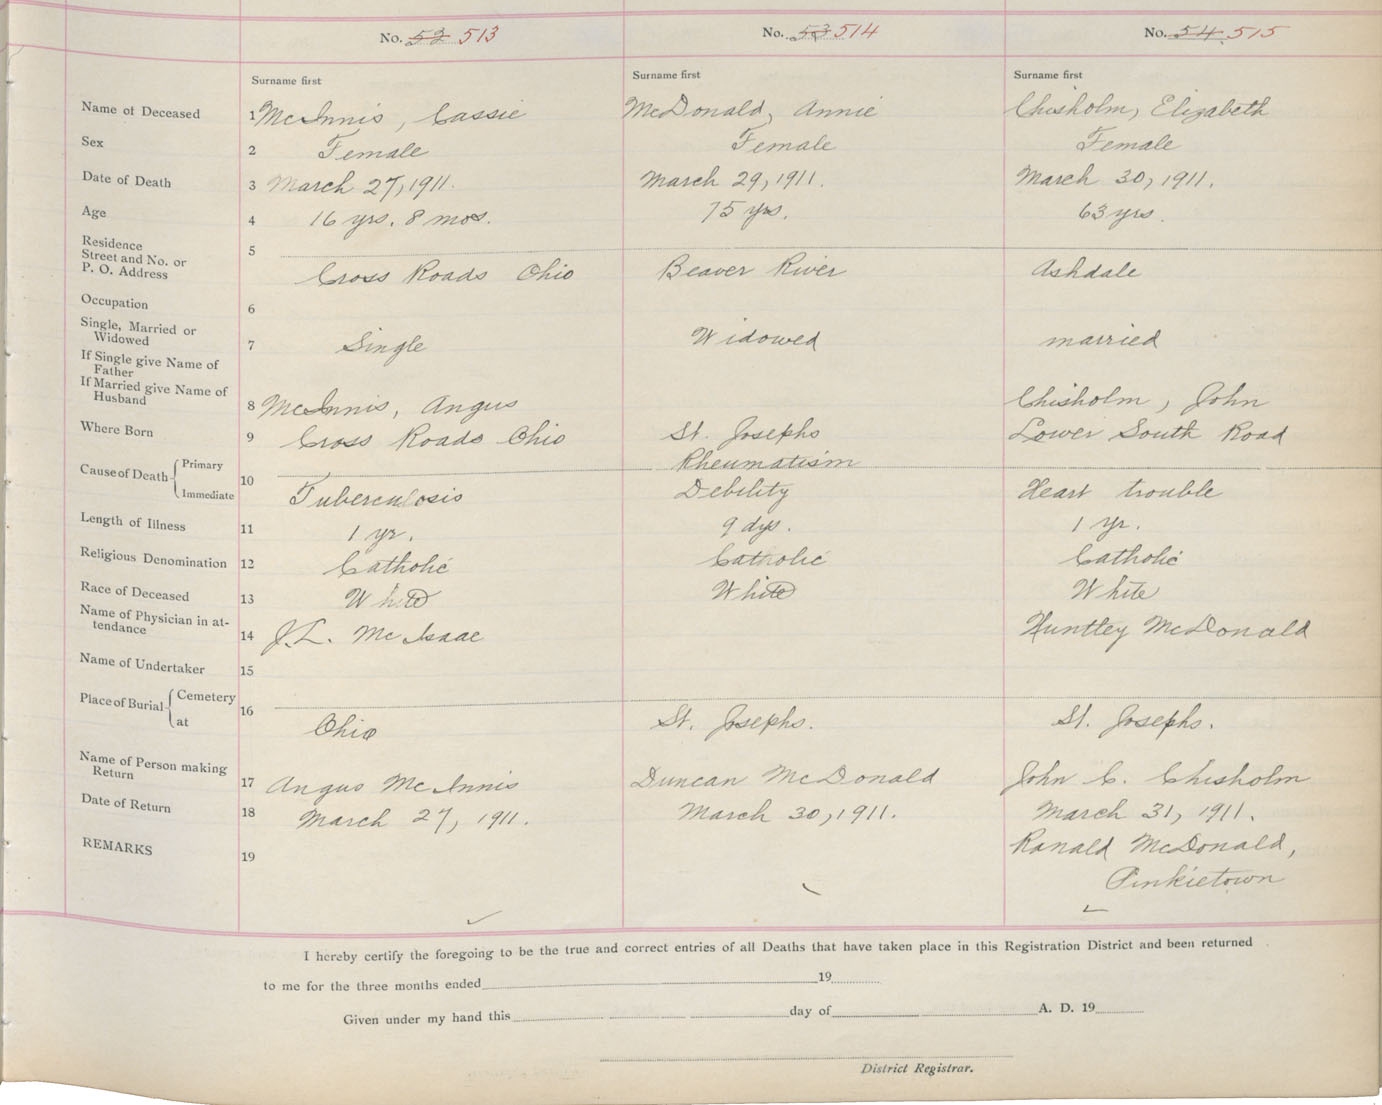 No. 52 513 No. 53 514 No. 54. 515
Surname first Surname first Surname first
Name of Deceased 1 McInnis, Cassie McDonald, Annie Chisholm, Elizabeth
Sex 2 Female Female Female
Date of Death 3 March 27, 1911. March 29, 1911. March 30, 1911.
Age 4 16 yrs. 8 mos. 75 yrs. 63 yrs.
Residence
Street and No. or 5
P. O. Address Cross Roads Ohio Beaver River Ashdale
Occupation 6
Single, Married or
Widowed 7 Single Widowed married
If Single give Name of
Father
If Married give Name of
Husband 8 McInnis, Angus Chisholm, John
Where Born 9 Cross Roads Ohio St. Josephs Lower South Road
Cause of Death Primary 10 Rheumatism
Immediate Tuberculosis Debility Heart trouble
Length of Illness 11 1 yr. 9 dys. 1 yr.
Religious Denomination 12 Catholic Catholic Catholic
Race of Deceased 13 White White White
Name of Physician in at-
tendance 14 J.L. McIsaac Huntley McDonald
Name of Undertaker 15
Place of Burial Cemetery 16
at Ohio St. Josephs. St. Josephs.
Name of Person making
Return 17 Angus McInnis Duncan McDonald John C. Chisholm
Date of Return 18 March 27, 1911. March 30, 1911. March 31, 1911.
REMARKS 19 Ranald McDonald,
Pinkietown
I hereby certify the foregoing to be the true and correct entries of all Deaths that have taken place in this Registration District and been returned
to me for the three months ended 19
Given under my hand this day of A. D. 19
District Registrar.